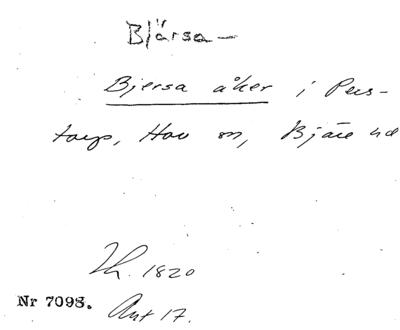 Bjärsa–
Bjersa åker i Pers-
torp, Hov sn, Bjäre hd
Th. 1820
Nr 7098. Ant 17.